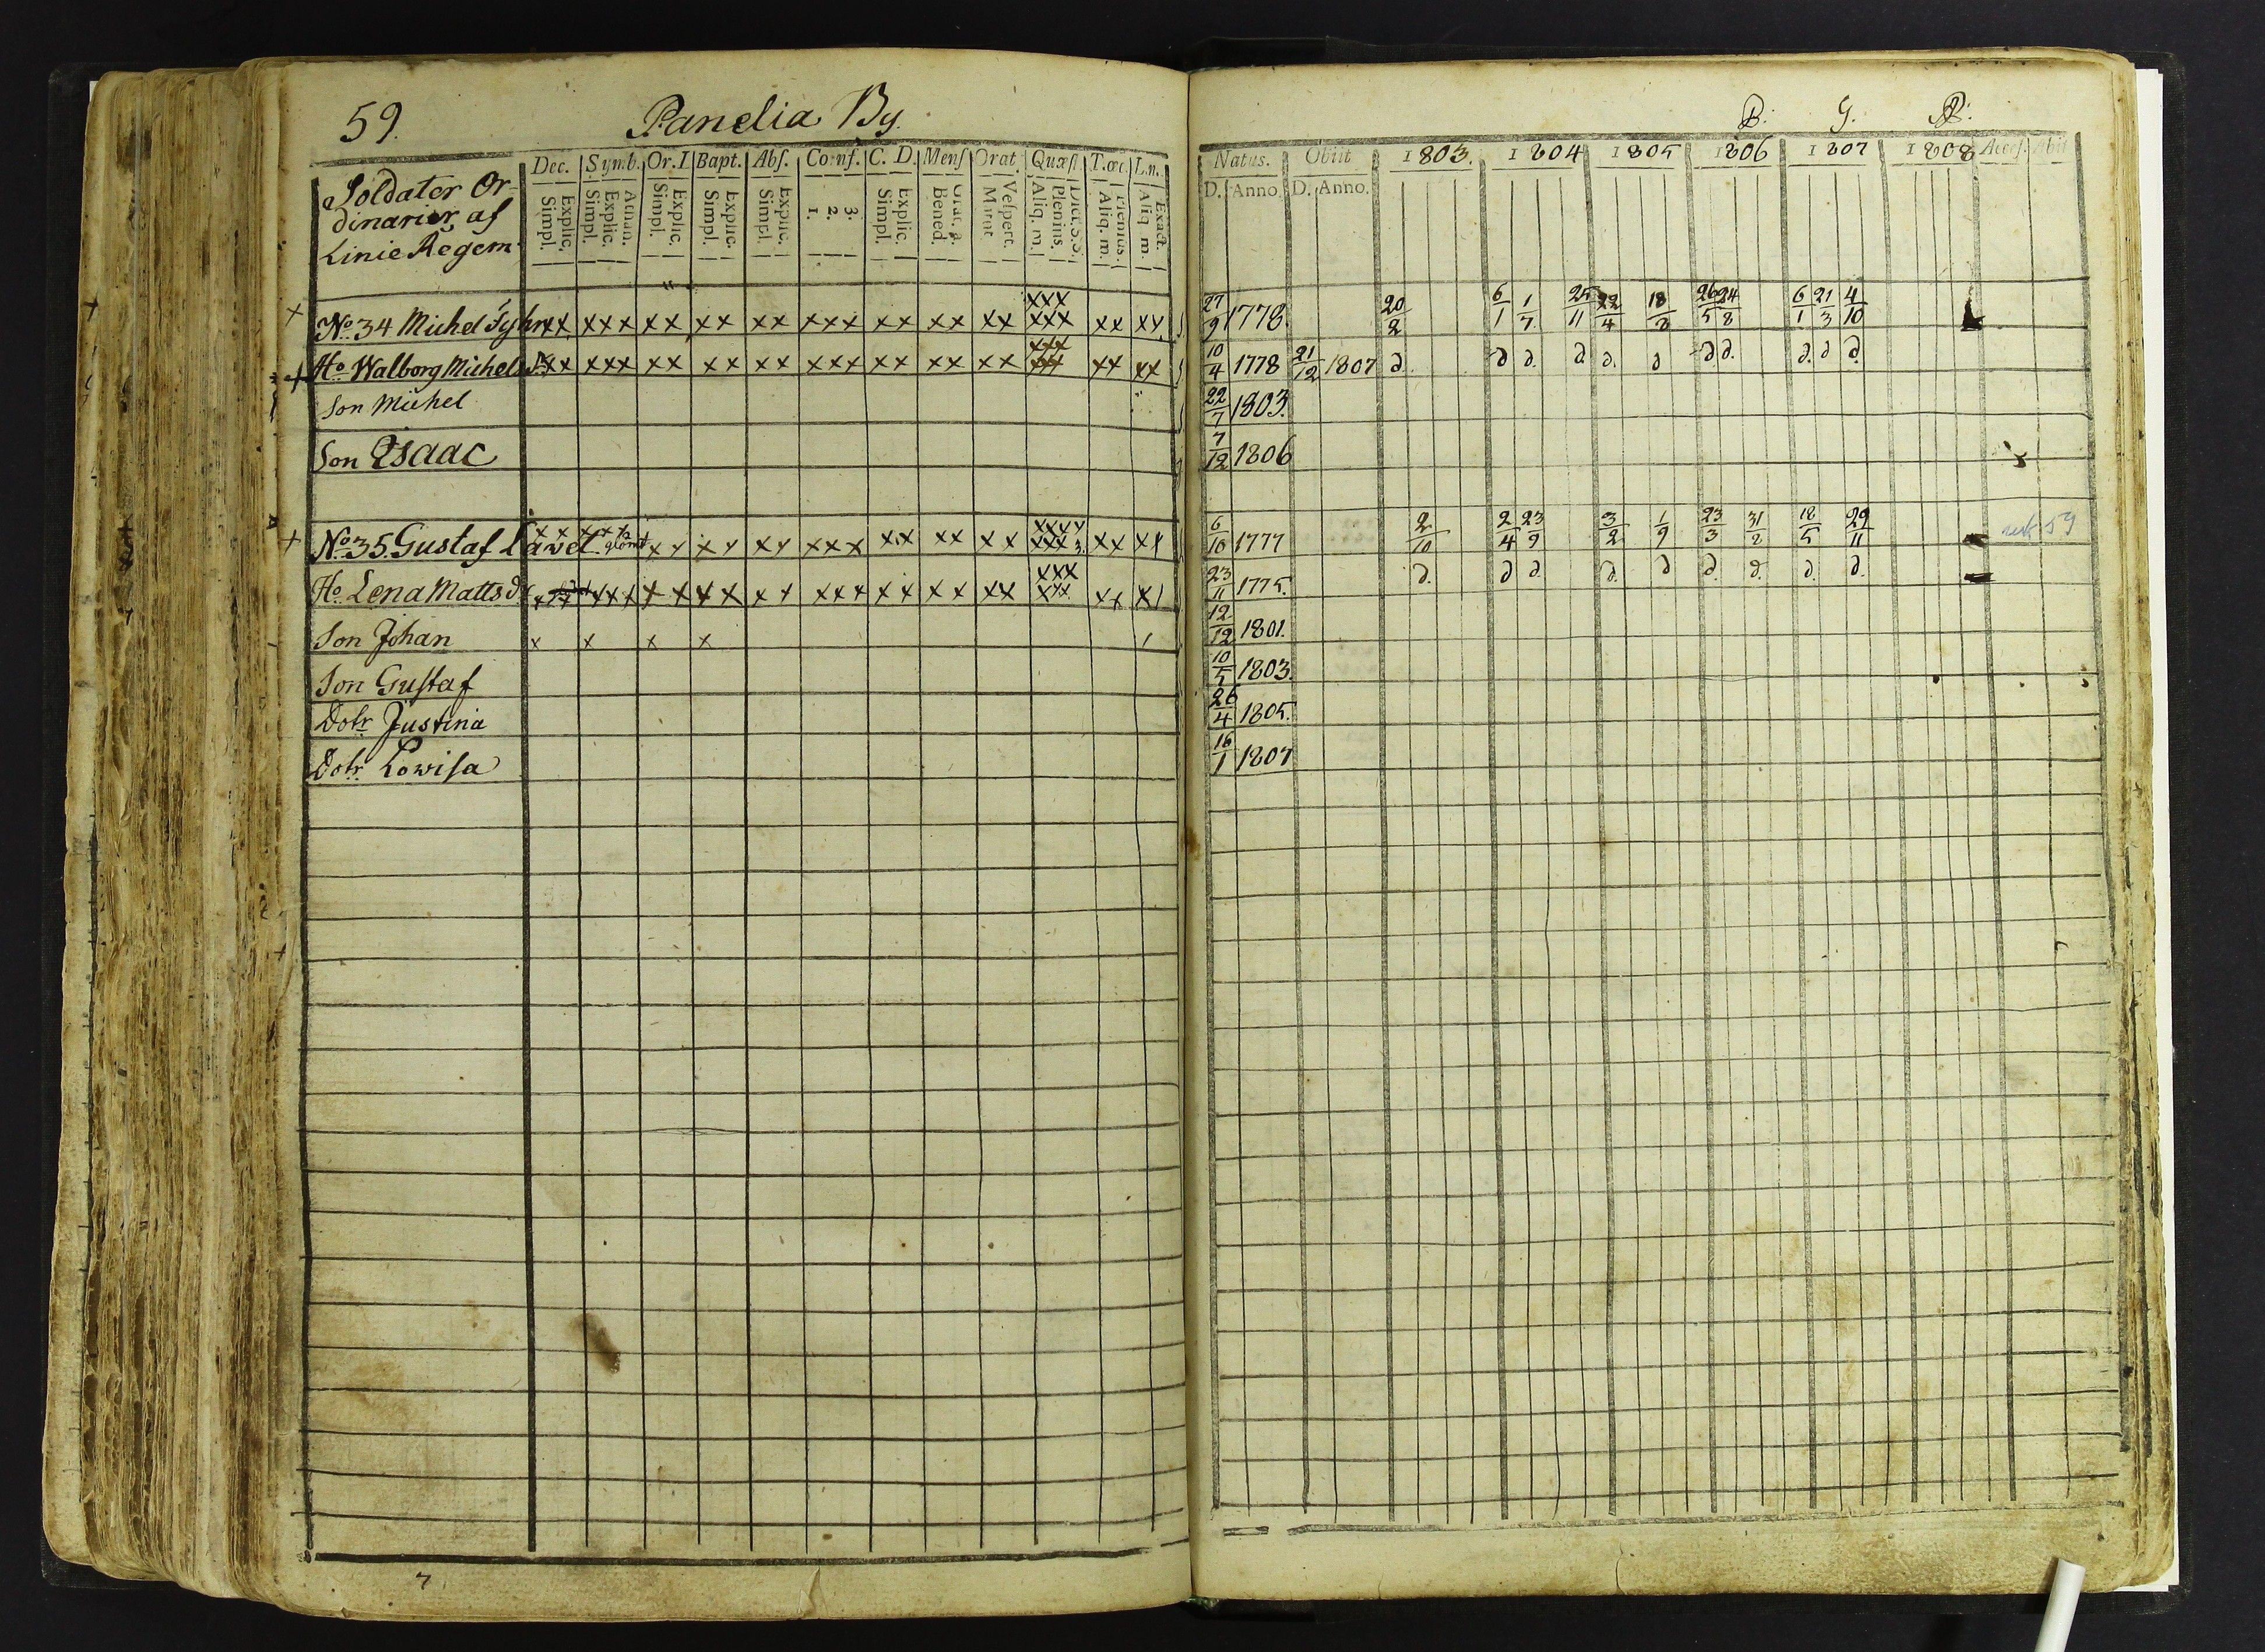 59. Panelia By.
B: G. R:
Dec. Symb. Or. D Bapt. Abs. Conf. C. D. Mens Orat. Quæst. T. œc. L.n.
Explic. Simpl. Athan. Explic. Simpl. Explic. Simpl. Explic. Simpl. Explic. Simpl. 3. 2. 1. Explic. Simpl. Grat. a. Bened. Vespert. Matut Dict. S. S. Plenius. Aliq. m. Plenius. Aliq. m. Exact. Aliq m.
Natus. Obiit 1803. 1804 1805 1806 1807 1808 Access. Abit
D. Anno. D. Anno.
Soldater Or-
dinarier af
Linie Regem:
No 34 Michel Fyhr xx xxx xx xx xx xxx xx xx xx xxx xxx xx xx 27/9 1778. 20/2 6/1 1/7 25/11 22/4 18/8 26/5 24/8 6/1 21/3 4/10
Ho Walborg Michels d. xx xxx xx xx xx xxx xx xx xx xxx xxx xx xx 10/4 1778 21/12 1807 d. d d. d d. d d d. d. d d.
Son Michel 22/7 1803.
Son Isaac 7/12 1806
No 35. Gustaf Lawel x x x x x glömt xx xx xx xxx xx xx xx xxxx xxx 3. xx xx 6/10 1777 2/10 2/4 23/9 3/2 1/9 23/3 31/8 18/5 29/11 59
Ho Lena Matts d. xxx xxx xx xx xx xxx xx xx xx xxx xxx xx x/ 23/11 1775. d. d d. d. d d. d. d. d.
Son Johan x x x x / 12/12 1801.
Son Gustaf 10/5 1803.
Dotr Justina 26/4 1805.
Dotr Lowisa 16/1 1807